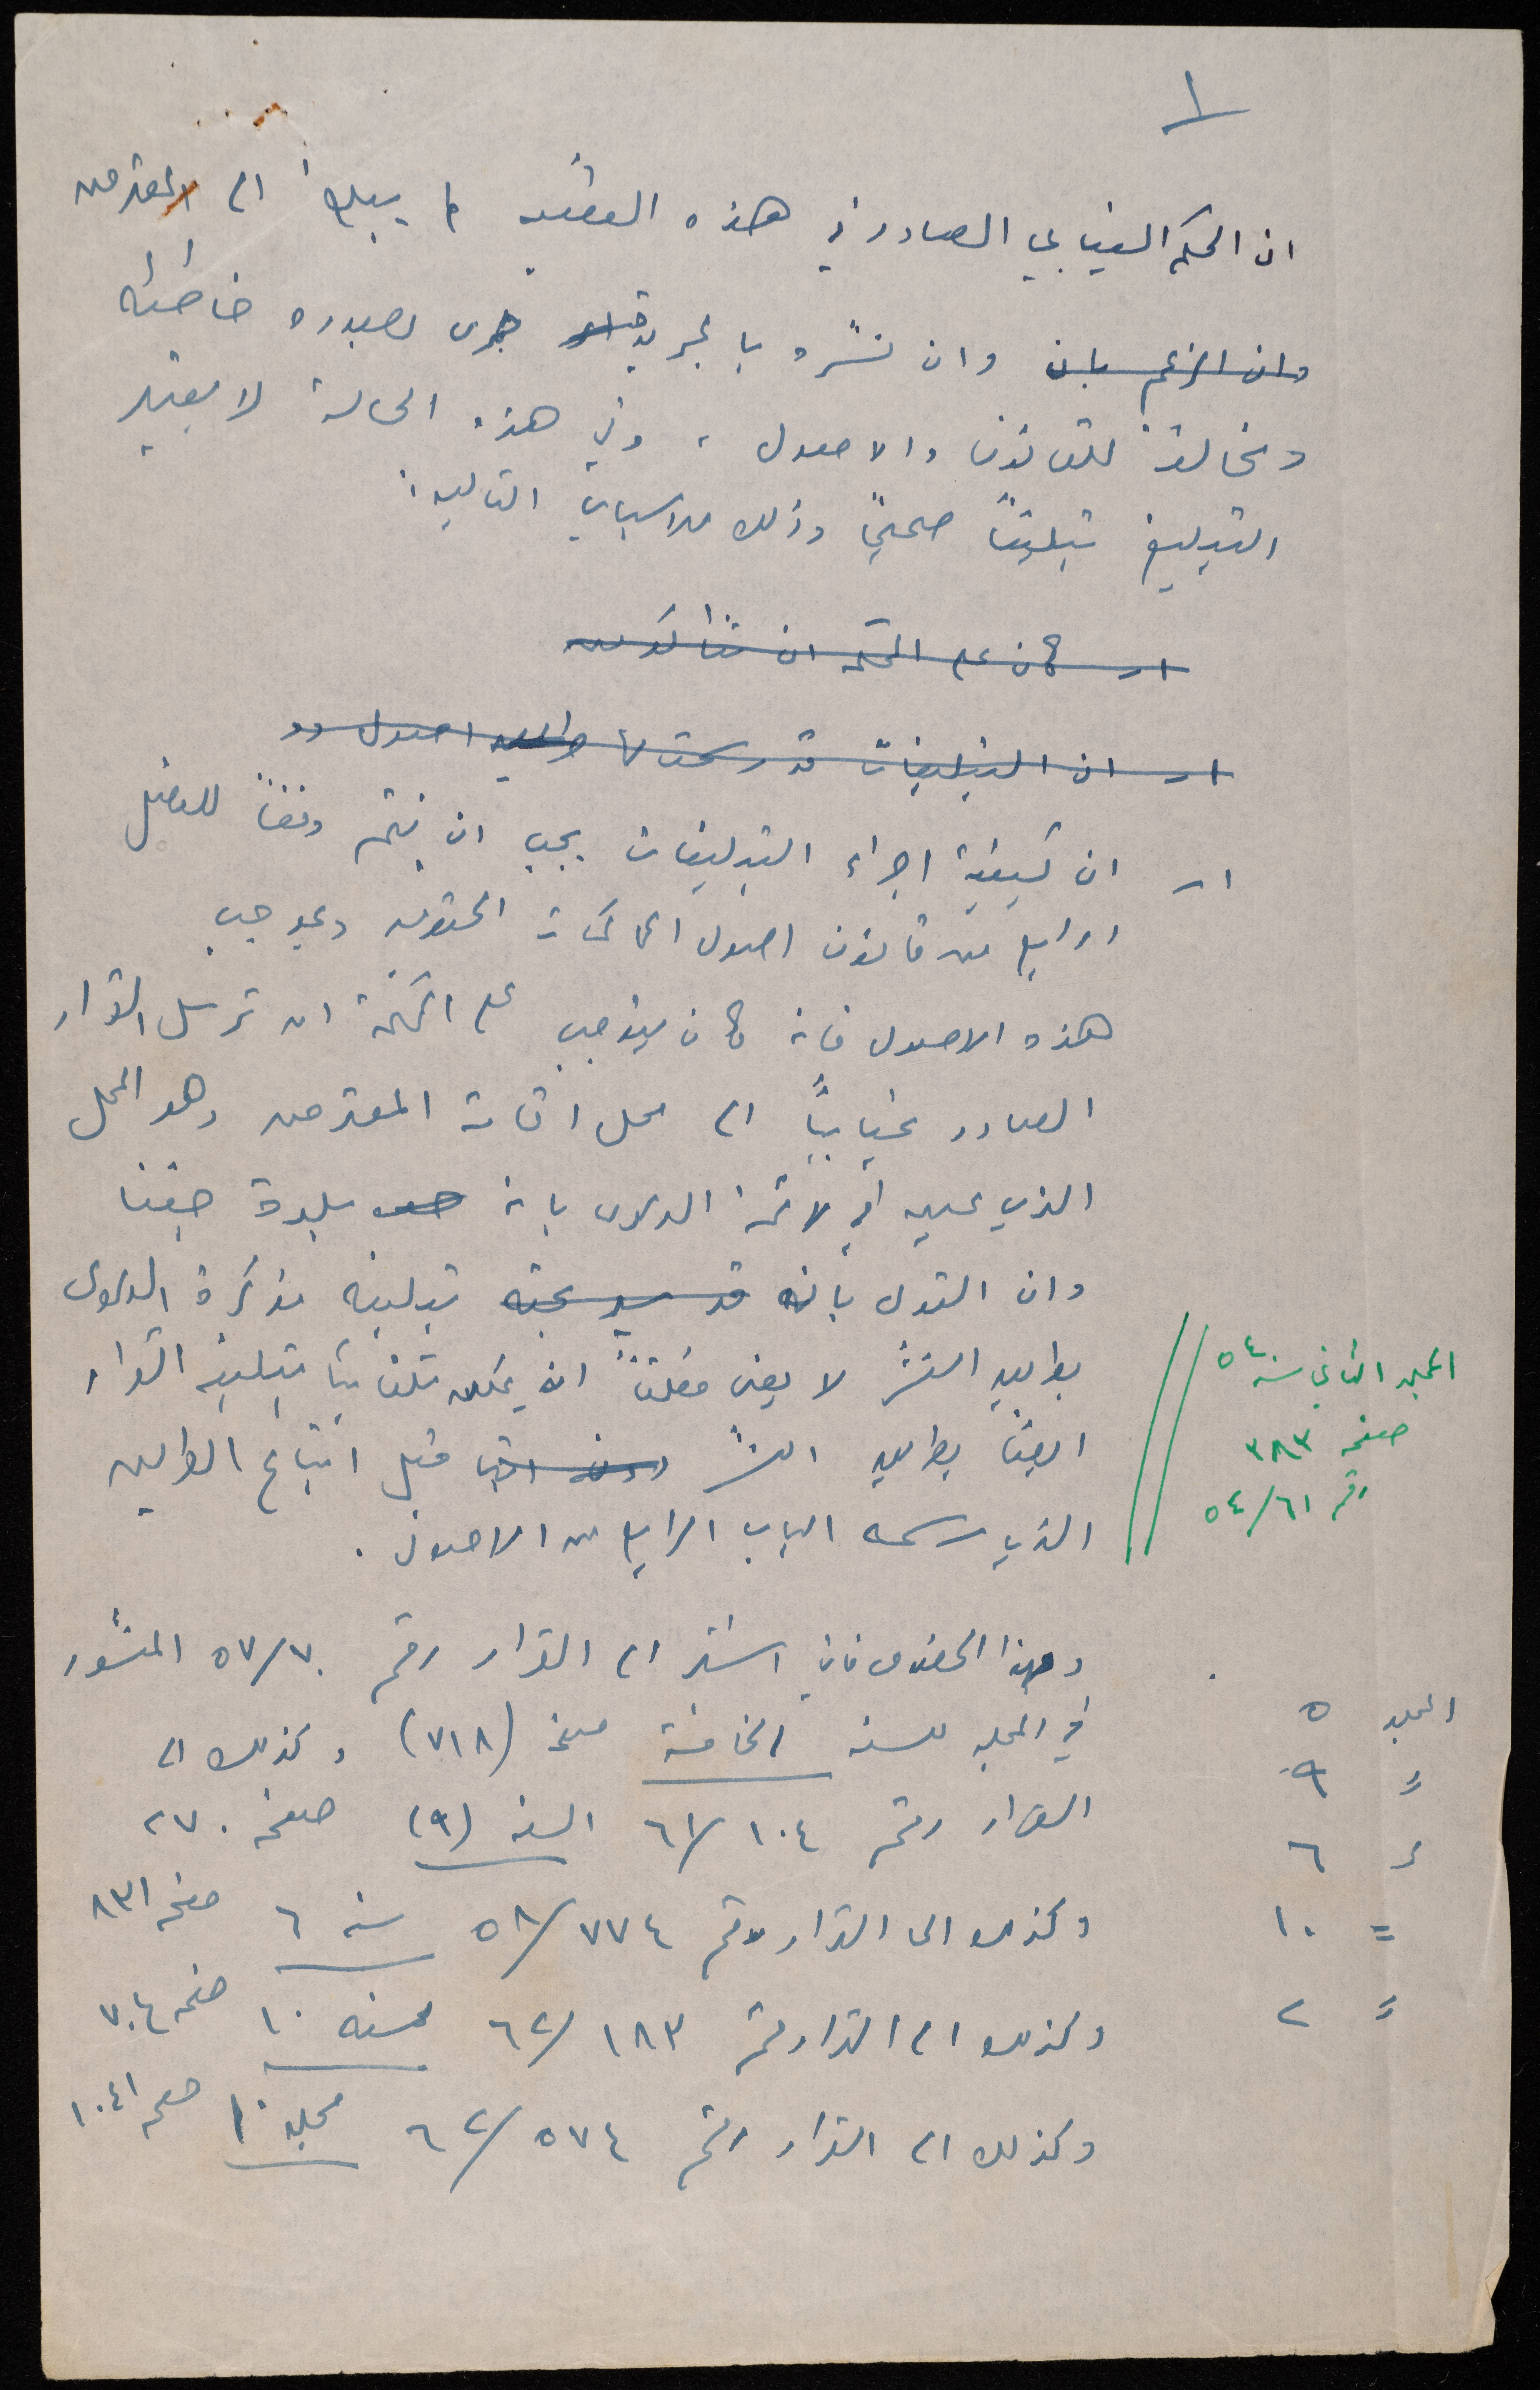 ١
ان الحكم الغيابي الصادر في هذه القضية لم يبلغ الى المعترض
وان الزعم بان وان نشره بالجريدة جرى بصوره خاطئه
ومخالفة للقانون والاصول ، وفي هذه الحالة لا يعتبر
التبليغ تبليغاً صحيحاً وذلك للاسباب التاليه :
١ـ كان على المحكمه ان تتأكد من
١ـ ان التبليغات قد رسمت لها اصول
١ـ ان كيفية اجراء التبليغات يجب ان يتم وفقاً للفصل
الرابع من قانون اصول المحاكمات الحقوقيه وبموجب
هذه الاصول فانه كان يتوجب على المحكمة ان ترسل القرار
الصادر غيابياً الى محل اقامة المعترض وهو المحل
الذي عينه في لائحة الدعوى بانه بلدة جفنا
وان القول بانه تبليغه مذكرة الدعوى
بطريق النشر لا يعني مطلقاً انه يمكن تلقائياً تبليغه القرار
ايضاً بطريق النشر قبل اتباع الطريق
الذي رسمه الباب الرابع من الاصول .
المجلد الثاني سنة ٥٤
صفحه ٣٨٣
رقم ٥٤/٦١
وبهذا الخصوص فاني استند الى القرار رقم ٥٧/٧٠ المنشور
في المجله للسنه الخامسة صفحة (٧١٨) وكذلك الى
القرار رقم ٦١/١٠٤ السنه (٩) صفحه ٢٧٠
وكذلك الى القرار رقم ٥٨/٧٧٤ سنه ٦ صفحه ٨٣١
وكذلك الى القرار رقم ٦٢/١٨٣ سنه ١٠ صفحه ٧٠٤
وكذلك الى القرار رقم ٦٢/٥٧٤ مجلد ١٠ صفحه ١٠٤١
المجلد ٥
〃 ٩
〃 ٦
= ١٠
〃 ٢